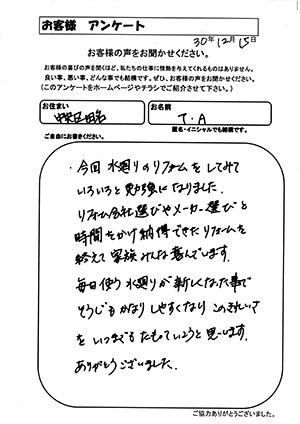 お客様 アンケート
30年12月15日
お客様の声をお聞かせください。
お客様の喜びの声を聞くほど、私たちの仕事に情熱を与えてくれるものはありません。
良い事、悪い事、どんな事でも結構です。ぜひ、お客様の声をお聞かせください。
(このアンケートをホームページやチラシでご紹介させて下さい。)
お住まい
お名前
中央区田名
T・A
匿名・イニシャルでも結構です。
ご自由にお書きください。
・今回 水廻りのリフォームをしてみて
いろいろと勉強になりました。
リフォーム会社選びやメーカー選びと
時間をかけ納得できたリフォームを
終えて家族みんな喜んでいます。
毎日使う水廻りが新しくなった事で
そうじもかなりしやすくなり このきれいさ
をいつまでもたもっていこうと思います。
ありがとうございました。
ご協力ありがとうございました。